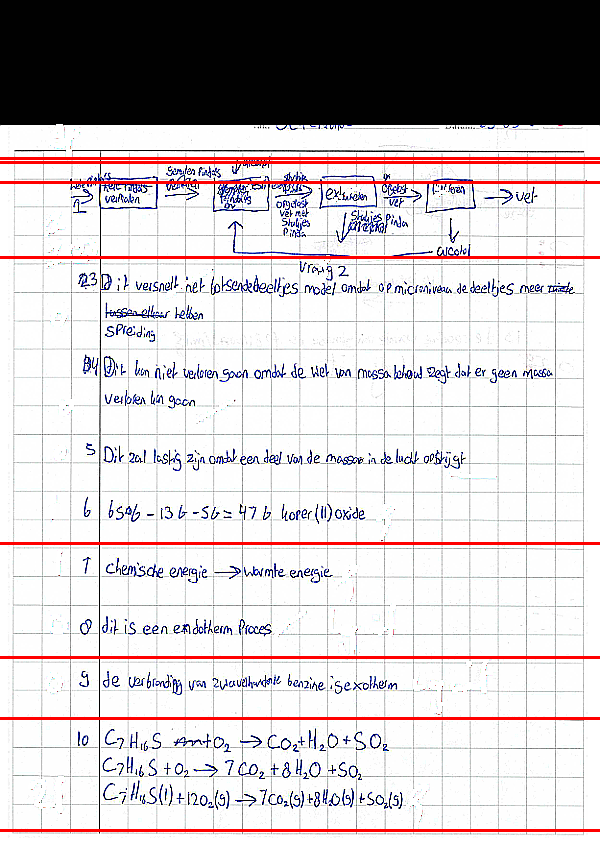 1 hele Pinda's vermalen
vermalen
extraheren
opgelost vet met Stukjes Pinda
Stukjes Pinda
Opgelost vet
vet
alcohol
Vraag 2
3 Dit versnelt het botsendedeeltjes model omdat op microniveau de deeltjes meer
tussen elkaar hebben
spreiding
4 Dit kan niet verloren gaan omdat de wet van massa behoud zegt dat er geen massa
verloren kan gaan
5 Dit zal lastig zijn omdat een deel van de massa in de lucht opstijgt
6 65g - 13 g - 5g = 47 g koper(II)oxide
7 Chemische energie → warmte energie
8 dit is een endotherm Proces
9 de verbranding van zwavelhoudende benzine is exotherm
10 C₇H₁₆S + O₂ → CO₂ + H₂O + SO₂
C₇H₁₆S + O₂ → 7CO₂ + 8H₂O + SO₂
C₇H₁₆S(l) + 12O₂(g) → 7CO₂(g) + 8H₂O(g) + SO₂(g)